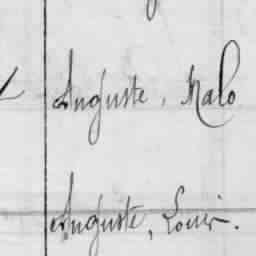 Auguste, Malo
Auguste, Louis.